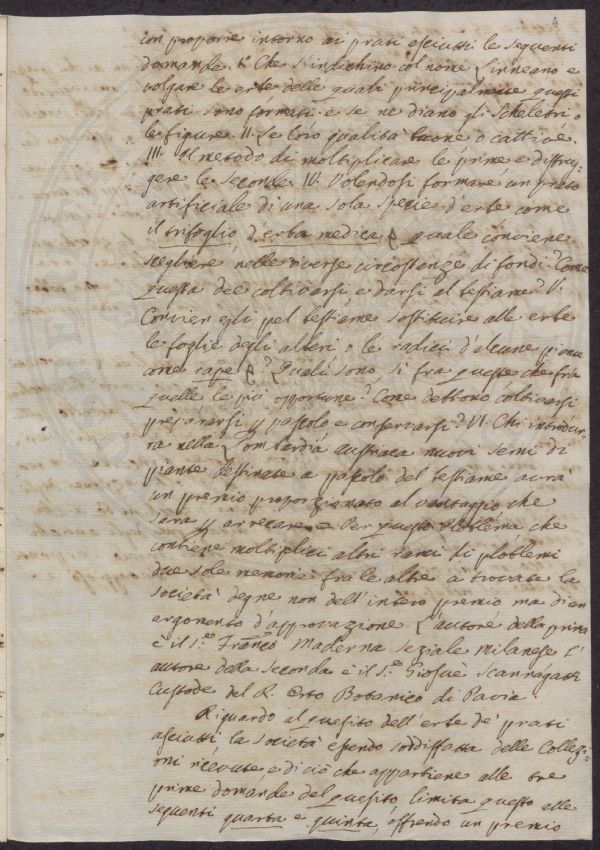 4
con proporre intorno ai prati asciutti le seguenti
domande. I.º Che s'indichino col nome Linneano e
volgare le erbe delle quali principalmente questi
prati sono formati e se ne diano gli scheletri o
le figure. II. Le loro qualità buone o cattive.
III. Il metodo di moltiplicare le prime e distrug-
gere le seconde. IV. Volendosi formare un prato
artificiale di una sola spezie d'erbe come
il trifoglio, l'erba medica &. quale conviene
scegliere nelle diverse circostanze di fondi? Come
questa dee coltivarsi, e darsi al bestiame? V.
Convien egli pel bestiame sostituire alle erbe
le foglie degli alberi o le radici d'alcune piante
come rape &.? Quali sono sì fra queste che fra
quelle le più opportune? Come debbono coltivarsi
prepararsi p pascolo e conservarsi? VI. Chi introdur-
rà nella Lombardia austriaca nuovi semi di
piante destinate a pascolo del bestiame avrà
un premio proporzionato al vantaggio che
sarà p arrecare = Per questo Problema che
contiene moltiplici altri rami di problemi
due sole memorie fra le altre à trovate la
società degne non dell'intero premio ma di un
argomento d'approvazione. L'autore della prima
è il S.r Franco Maderna speziale milanese l'
autore della seconda è il S.r Giosuè Scannagatti
Custode del R. Orto Botanico di Pavia.
Riguardo al quesito dell'erbe de' prati
asciutti, la società essendo soddisfatta delle Collezi-
oni ricevute, e di ciò che appartiene alle tre
prime domande del quesito, limita questo alle
seguenti quarta e quinta, offrendo un premio